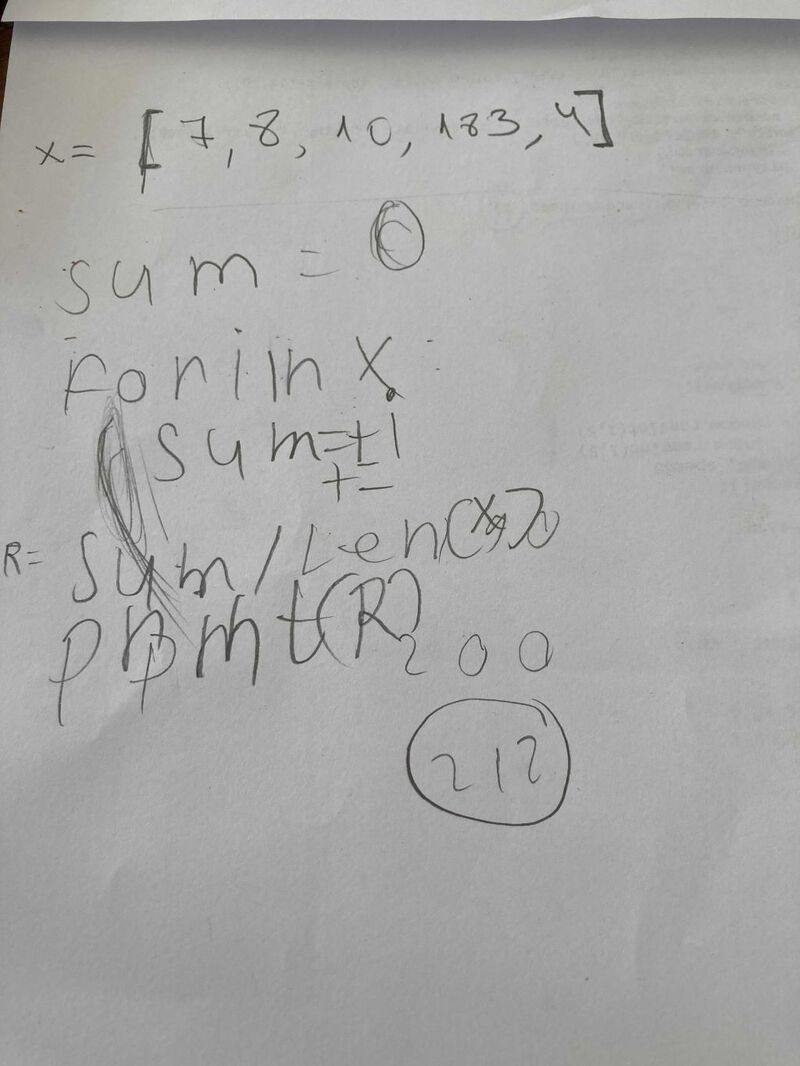 x = [7, 8, 10, 183, 4]
sum = 0
For i in x:
sum =+ i
+=
R = sum / Len(x)
print(R)
200
212